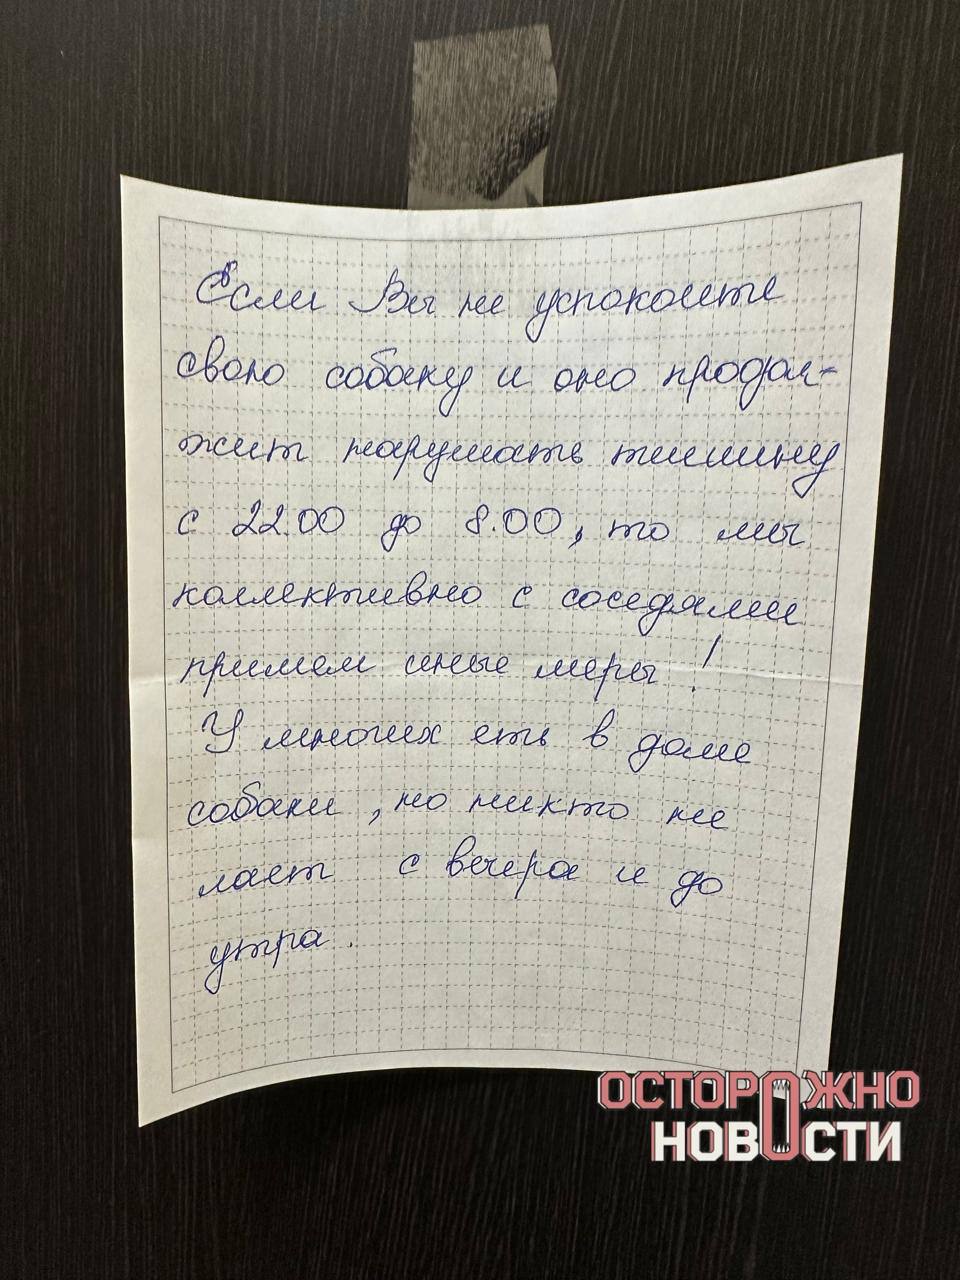 Если Вы не успокоите
свою собаку и оно продол-
жит нарушать тишину
с 22.00 до 8.00, то мы
коллективно с соседями
примем иные меры!
У многих еть в доме
собаки, но никто не
лает с вечера и до
утра.
ОСТОРОЖНО
НОВОСТИ